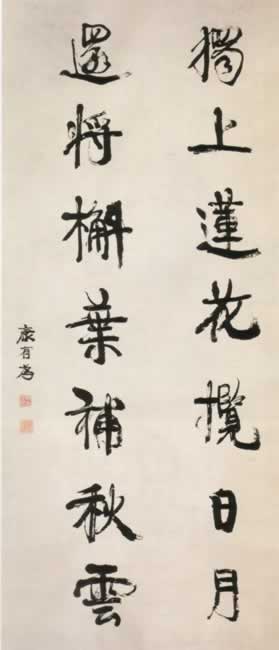 獨上蓮花攬日月
還將槲葉補秋雲
康有為